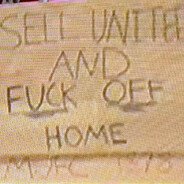 SELL UNITH
AND
FUCK OFF
HOME
MUFC 1878